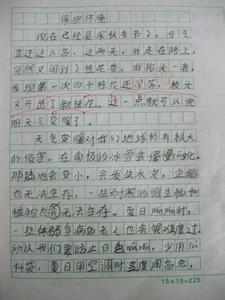 保护环境
现在已经是深秋季节了，可气
温还这么高，这两天，我走在路上，
突然又闻到了桂花香。我抬头一看，
发现第一次的干桂花还没落，枝头
又开了新桂花。这一点就可以说
明天气变暖了。
天气变暖对我们地球都有极大
的伤害。在南极的冰雪会慢慢融化，
那陆地会变小，会发生水灾，企鹅
也无法生存，一些耐寒的微生物和
植物也会无法生存。夏日炎炎时，
一些体弱多病的老人也会很难度过
所以我们要防止日益，少用塑
料袋，夏日用空调时温度调高点，
15×15=225